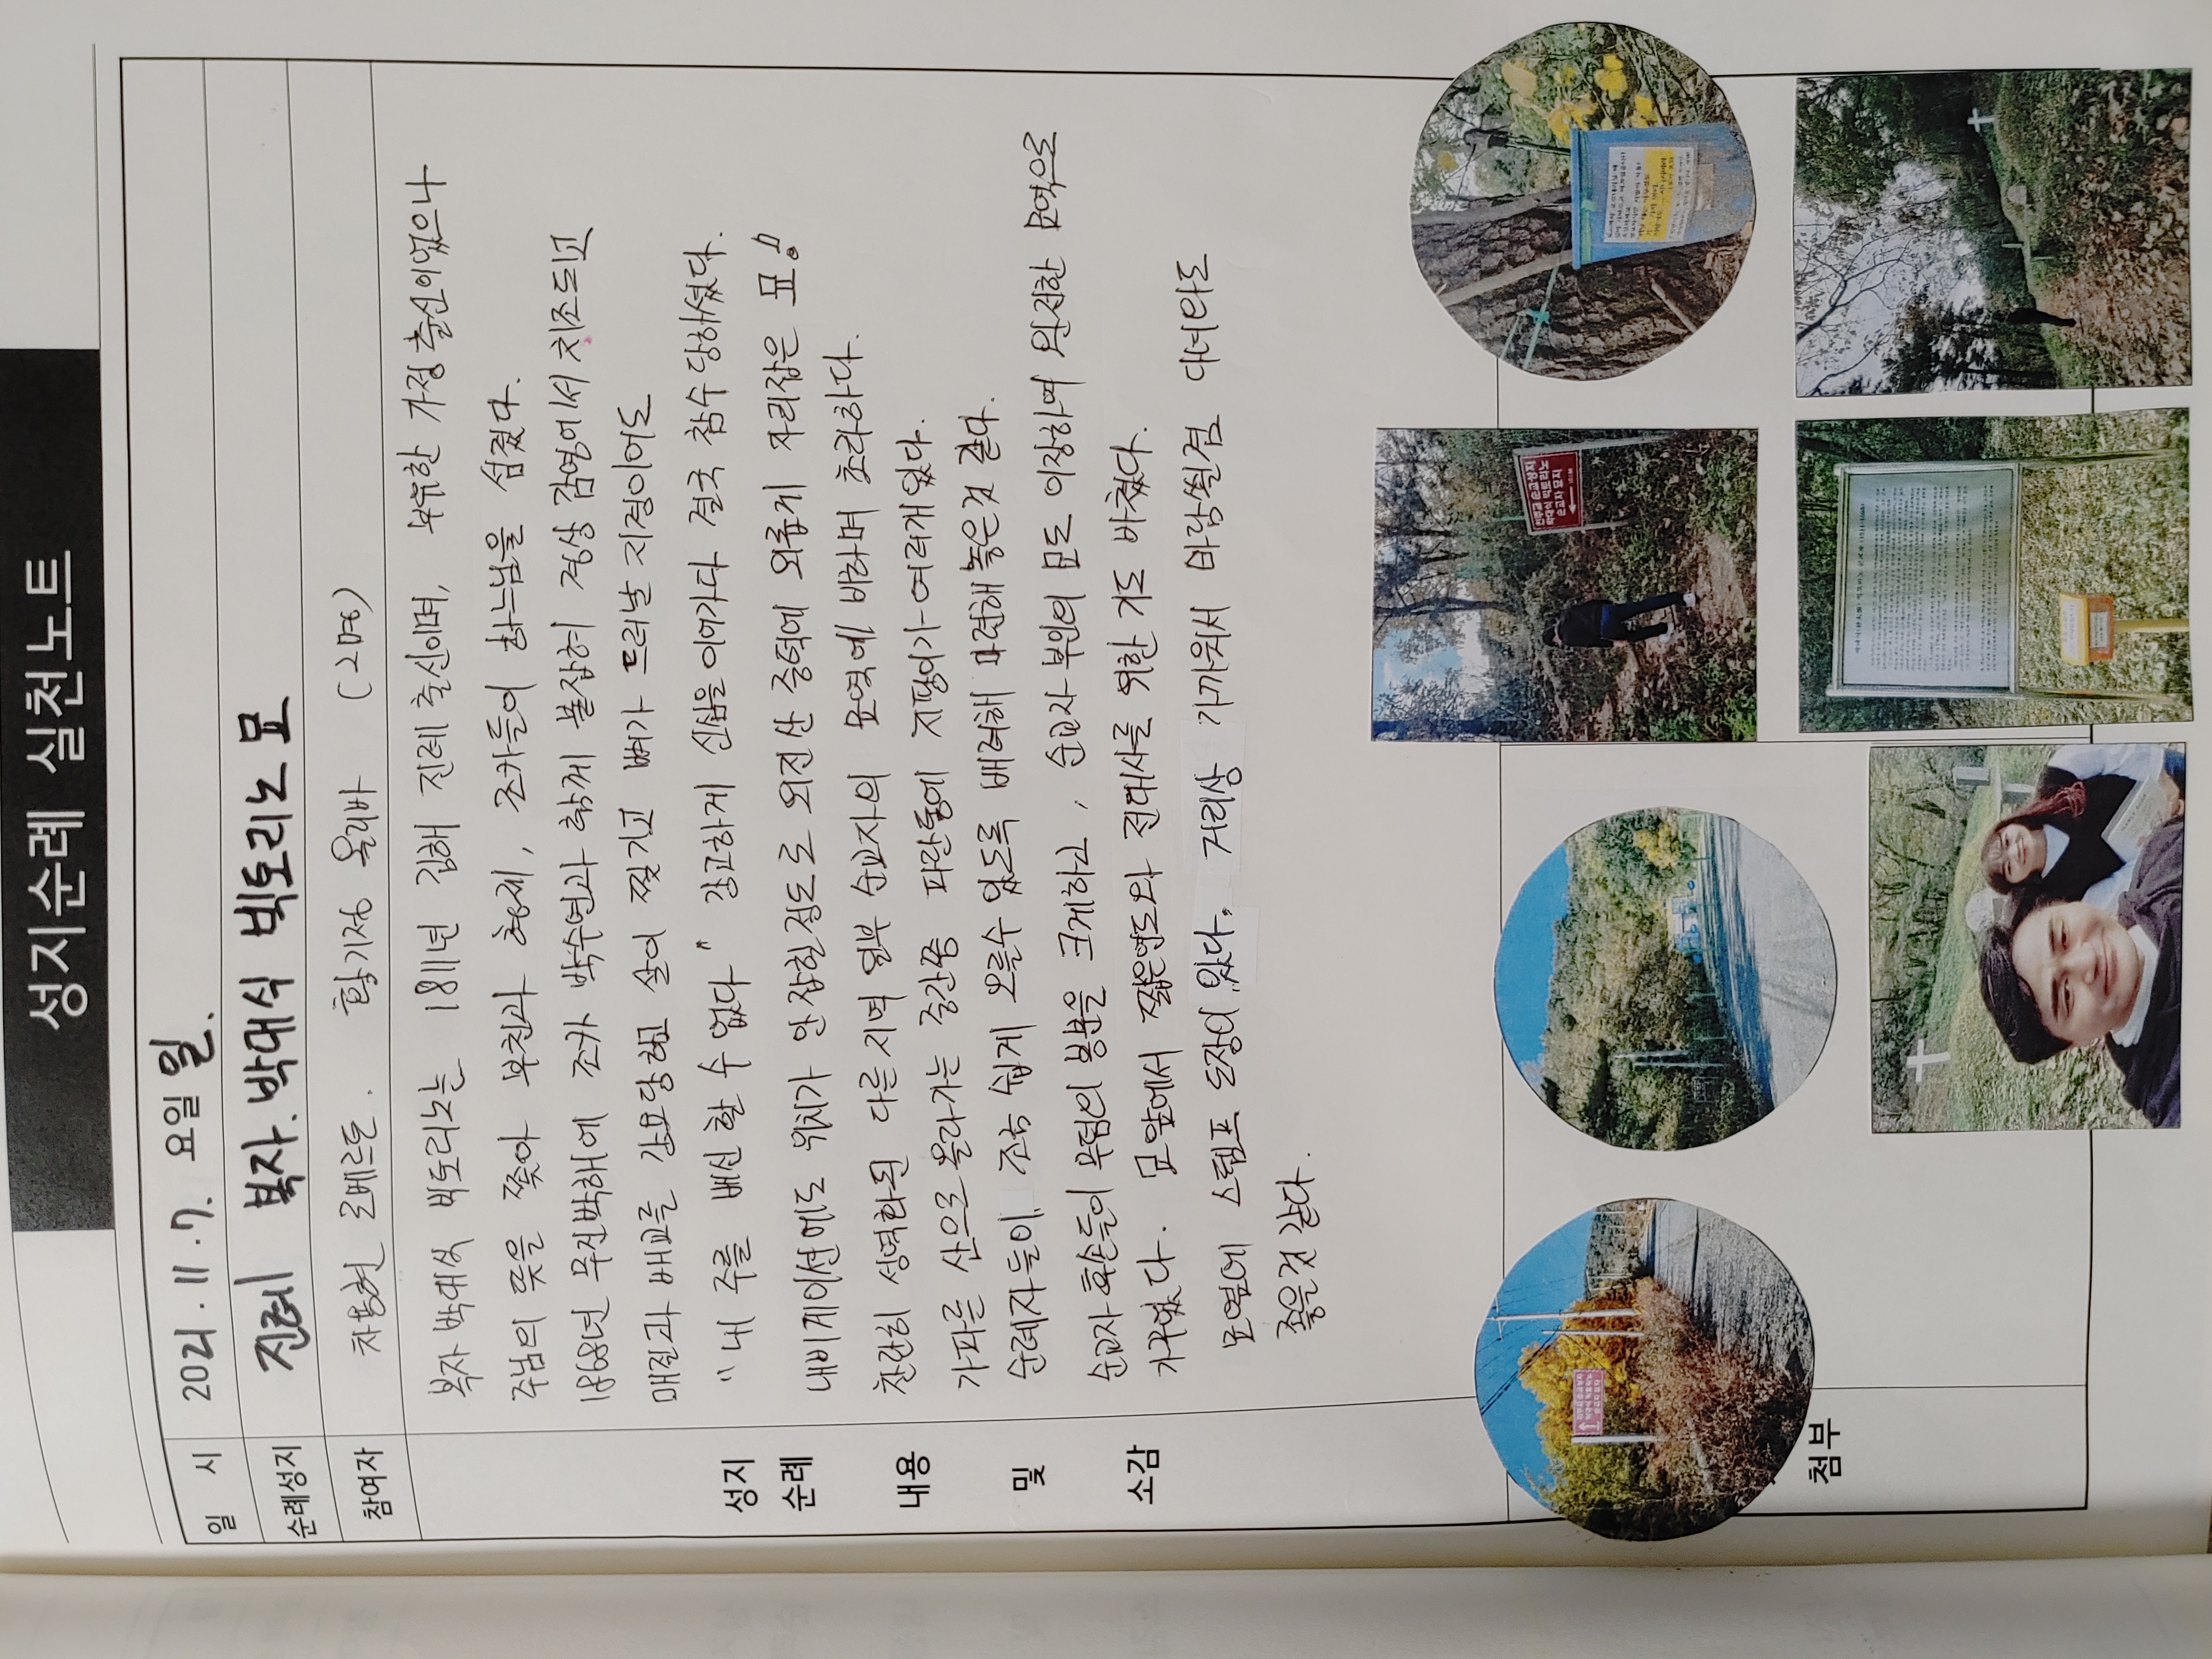 성지순례 실천노트
일 시 2021. 11. 7. 요일 일.
순례성지 진례 복자. 박대식 빅토리노 묘
참여자 차용현 로베르도. 황기정 올리바 (2명)
성지
순례
내용
및
소감
복자 박대식 빅토리노는 1811년 김해 진례 출신이며, 부유한 가정 출신이었으나
주님의 뜻을 쫓아 부친과 형제, 조카들이 하느님을 섬겼다.
1868년 무진박해에 조카 박수연과 함께 붙잡혀 경상 감영에서 치조되고
매질과 배교를 강요당하고 살이 찢기고 뼈가 드러날 지경이어도
"내 주를 배신할 수 없다" 강고하게 신심을 이어가다 결국 참수 당하셨다.
내비게이션에도 위치가 안잡힌정도로 외진산 중턱에 외롭게 자리잡은 묘!
찬란히 성역화된 다른지역 일부 순교자의 묘역에 비하며 초라하다.
가파른 산으로 올라가는 중간쯤 파란통에 지팡이가 여러개있다.
순례자들이 조금 쉽게 오를수 있도록 배려해 마련해놓은것 같다.
순교자후손들이 무덤의 봉분을 크게하고, 순교자 부인의 묘도 이장하여 완전한 묘역으로
가꾸었다. 묘앞에서 짧은연도와 전대사를 위한 기도 바쳤다.
묘옆에 스탬프 도장이 있다. 거리상 가까워서 바람쐴겸 다녀와도
좋을것 같다.
첨부
천주교 순교성지
박대식 빅토리노
순교자묘지